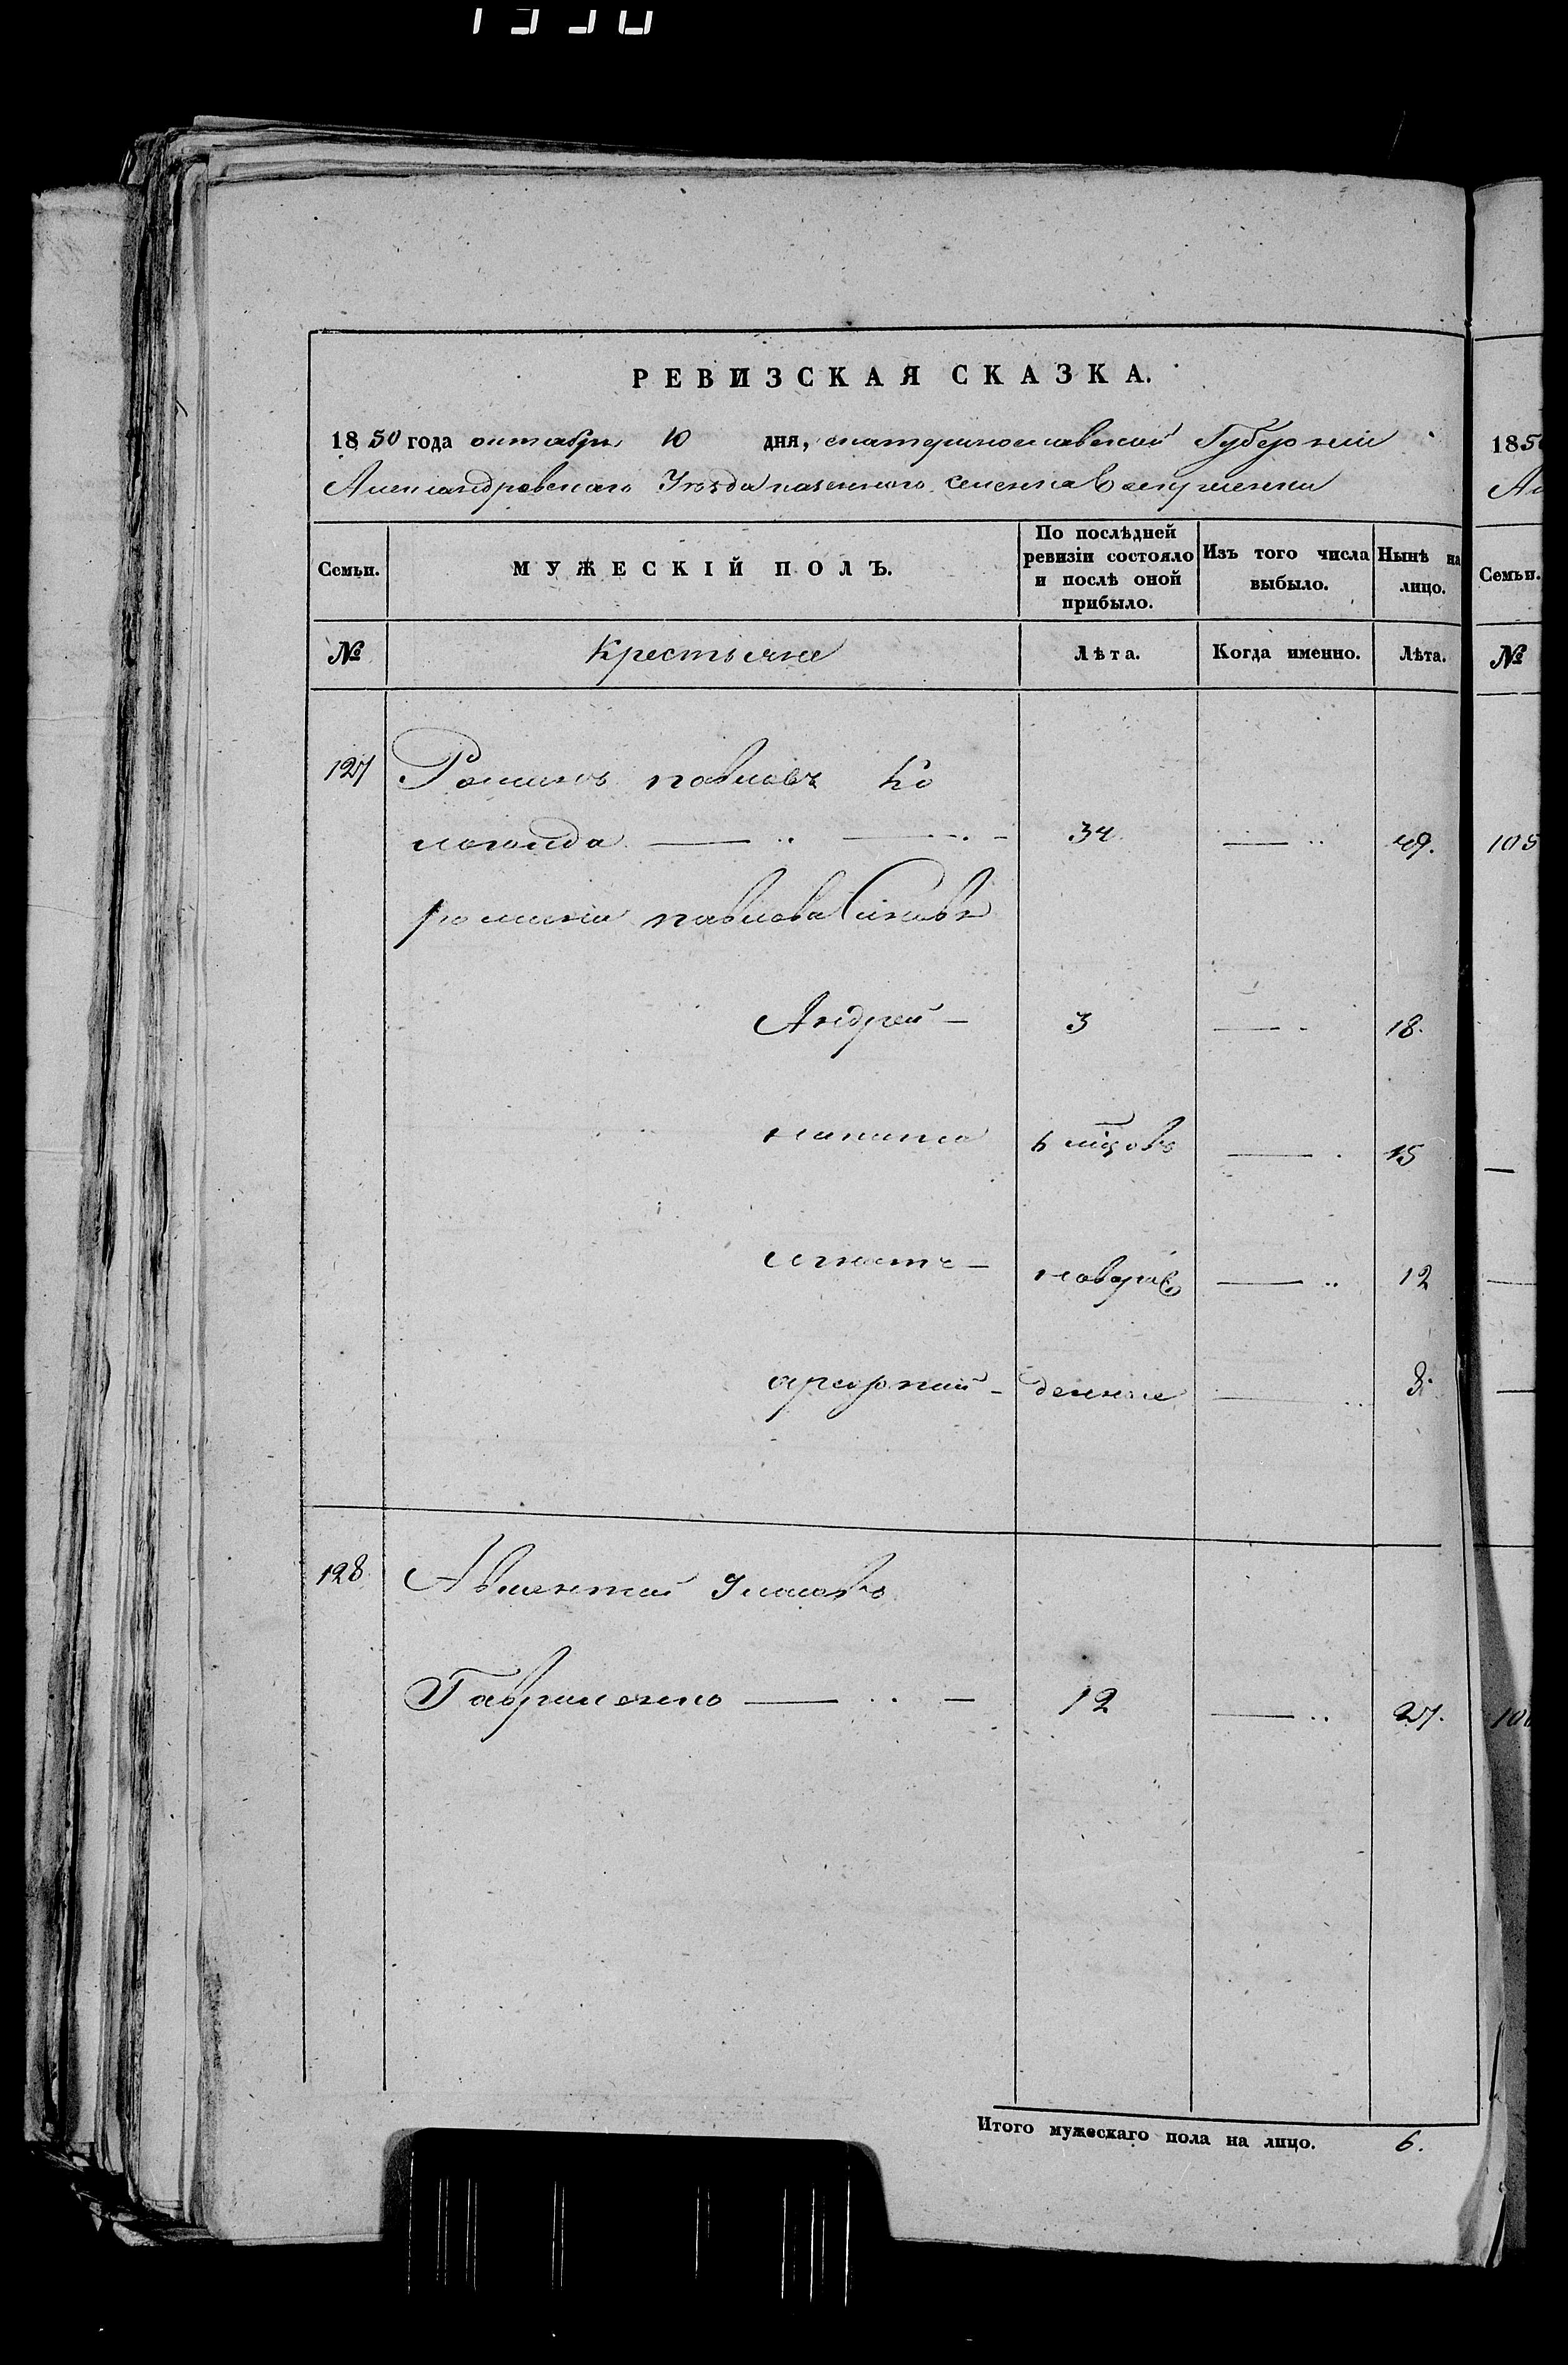 РЕВИЗСКАЯ СКАЗКА.
1850 года октября 10 дня, екатеринославской Губернии
Александровскаго Уѣзда казеннаго селения Воскресенки
Семьи. МУЖЕСКІЙ ПОЛЪ. По послѣдней ревизіи состояло и послѣ оной прибыло. Изъ того числа выбыло. Нынѣ на лицо.
№ Крестьяне Лѣта. Когда именно. Лѣта.
127 Романъ павловъ Ко
логойда 34 49.
романа павлова Синовя
Андрей 3 18.
никита 6 мцовъ 15
игнатъ новорож 12
григорий денные 8.
128 Авксентий
Гавриленко 12 27.
Итого мужескаго пола на лицо. 6.
185
Семьи.
№
105